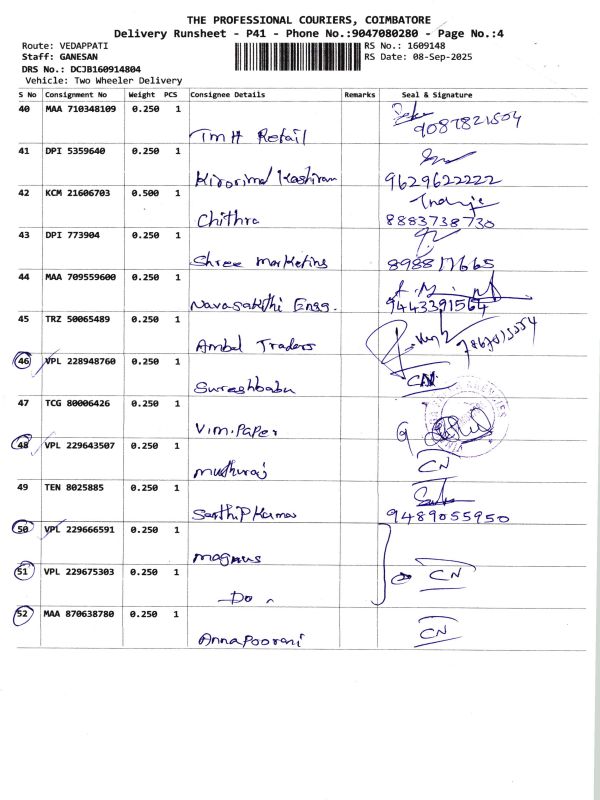 THE PROFESSIONAL COURIERS, COIMBATORE
Delivery Runsheet - P41 - Phone No.:9047080280 - Page No.:4
Route: VEDAPPATI RS No.: 1609148
Staff: GANESAN RS Date: 08-Sep-2025
DRS No.: DCJB160914804
Vehicle: Two Wheeler Delivery
S No Consignment No Weight PCS Consignee Details Remarks Seal & Signature
40 MAA 710348109 0.250 1
TMH Retail 9087821504
41 DPI 5359640 0.250 1
Kirorimal Kashiram 9629622222
42 KCM 21606703 0.500 1
Chithra 8883738730
43 DPI 773904 0.250 1
Shree Marketing 8988177665
44 MAA 709559600 0.250 1
Navasakthi Engg. 9443391564
45 TRZ 50065489 0.250 1
Ambal Traders
46 VPL 228948760 0.250 1 CN
Sureshbabu
47 TCG 80006426 0.250 1
Vim.Paper
48 VPL 229643507 0.250 1
Muthuraj CN
49 TEN 8025885 0.250 1
Sasthip Kumar 9489055950
50 VPL 229666591 0.250 1
Magnus
51 VPL 229675303 0.250 1 CN
- Do -
52 MAA 870638780 0.250 1
Annapoorani CN